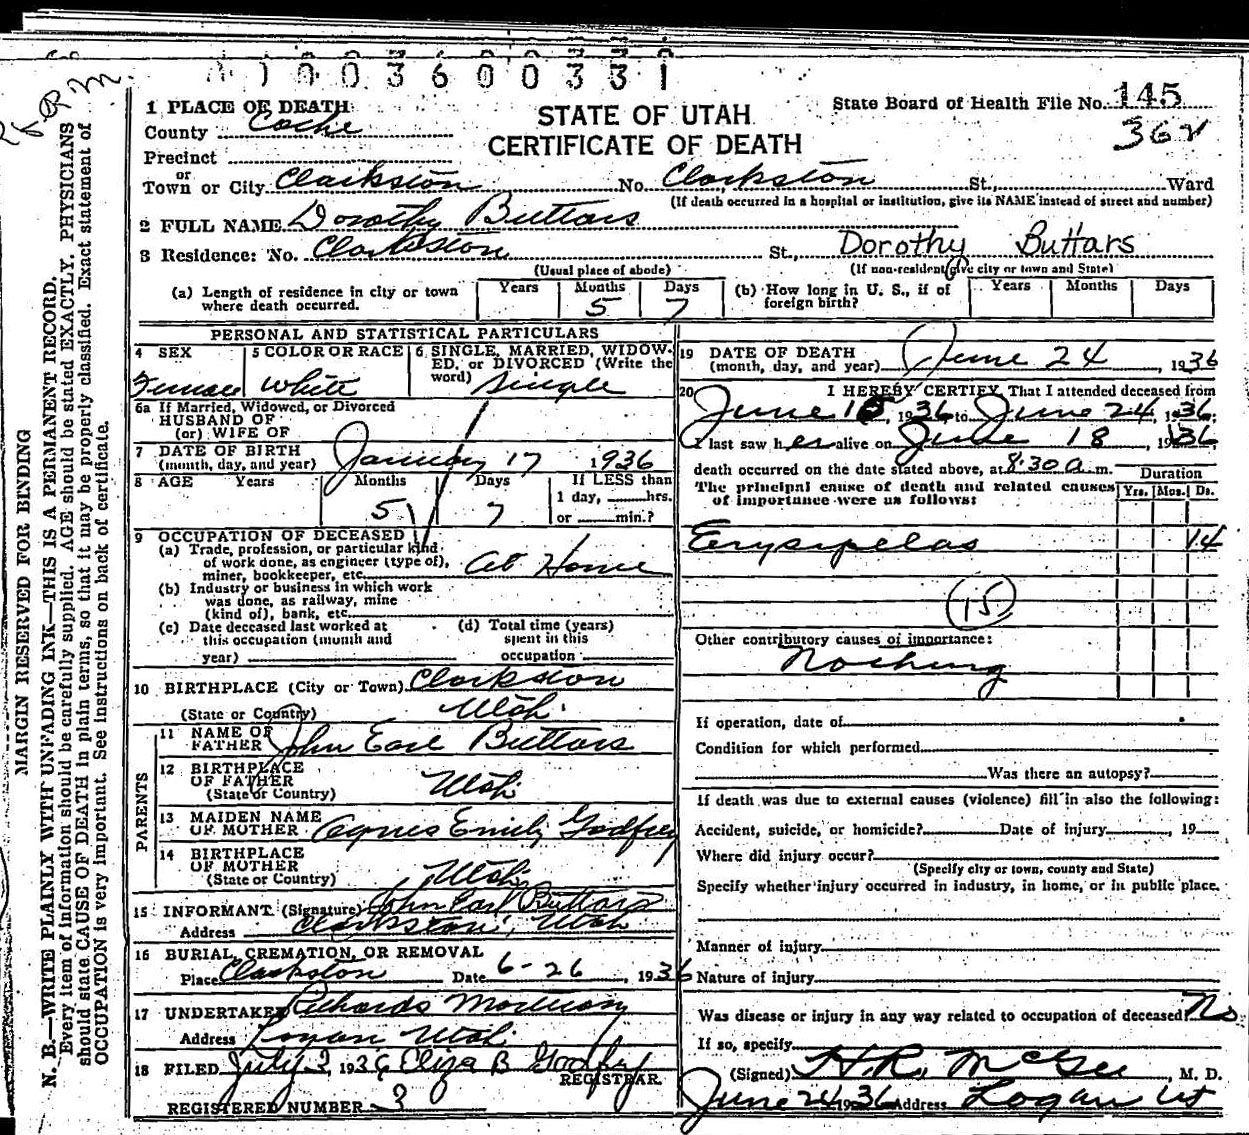 003600331
1 PLACE OF DEATH:
County Cache
STATE OF UTAH
CERTIFICATE OF DEATH
State Board of Health File No. 145
362
Precinct
or
Town or City Clarkston No. Clarkston St., Ward
(If death occurred in a hospital or institution, give its NAME instead of street and number)
2 FULL NAME Dorothy Buttars
3 Residence: No. Clarkston St., Dorothy Buttars
(Usual place of abode) (If non-resident give city or town and State)
(a) Length of residence in city or town where death occurred. Years Months 5 Days 7 (b) How long in U. S., if of foreign birth? Years Months Days
PERSONAL AND STATISTICAL PARTICULARS
4 SEX Female
5 COLOR OR RACE White
6 SINGLE, MARRIED, WIDOWED, or DIVORCED (Write the word) Single
6a If Married, Widowed, or Divorced
HUSBAND OF
(or) WIFE OF
7 DATE OF BIRTH
(month, day, and year) January 17 1936
8 AGE Years Months 5 Days 7 If LESS than
1 day, hrs.
or min.?
9 OCCUPATION OF DECEASED
(a) Trade, profession, or particular kind
of work done, as engineer (type of),
miner, bookkeeper, etc. At Home
(b) Industry or business in which work
was done, as railway, mine
(kind of), bank, etc.
(c) Date deceased last worked at
this occupation (month and
year)
(d) Total time (years)
spent in this
occupation
10 BIRTHPLACE (City or Town) Clarkston
(State or Country) Utah
PARENTS
11 NAME OF
FATHER John Earl Buttars
12 BIRTHPLACE
OF FATHER
(State or Country) Utah
13 MAIDEN NAME
OF MOTHER Agnes Emily Godfrey
14 BIRTHPLACE
OF MOTHER
(State or Country) Utah
15 INFORMANT (Signature) John Earl Buttars
Address Clarkston, Utah
16 BURIAL, CREMATION, OR REMOVAL
Place Clarkston Date 6-26, 1936
17 UNDERTAKER Richards Mortuary
Address Logan Utah
18 FILED July 3, 1936 Eliza B Godfrey
REGISTRAR
REGISTERED NUMBER 3
19 DATE OF DEATH
(month, day, and year) June 24, 1936
20 I HEREBY CERTIFY, That I attended deceased from
June 15, 1936, to June 24, 1936;
I last saw her alive on June 18, 1936
death occurred on the date stated above, at 8:30 a.m.
The principal cause of death and related causes
of importance were as follows:
Duration
Yrs. Mos. Ds.
Erysipelas 14
15
Other contributory causes of importance:
Nothing
If operation, date of
Condition for which performed
Was there an autopsy?
If death was due to external causes (violence) fill in also the following:
Accident, suicide, or homicide? Date of injury , 19
Where did injury occur?
(Specify city or town, county and State)
Specify whether injury occurred in industry, in home, or in public place.
Manner of injury
Nature of injury
Was disease or injury in any way related to occupation of deceased No
If so, specify
(Signed) H.R. McGee, M. D.
June 24 1936 Address Logan Ut
MARGIN RESERVED FOR BINDING
N. B.—WRITE PLAINLY WITH UNFADING INK—THIS IS A PERMANENT RECORD.
Every item of information should be carefully supplied. AGE should be stated EXACTLY. PHYSICIANS
should state CAUSE OF DEATH in plain terms, so that it may be properly classified. Exact statement of
OCCUPATION is very important. See instructions on back of certificate.